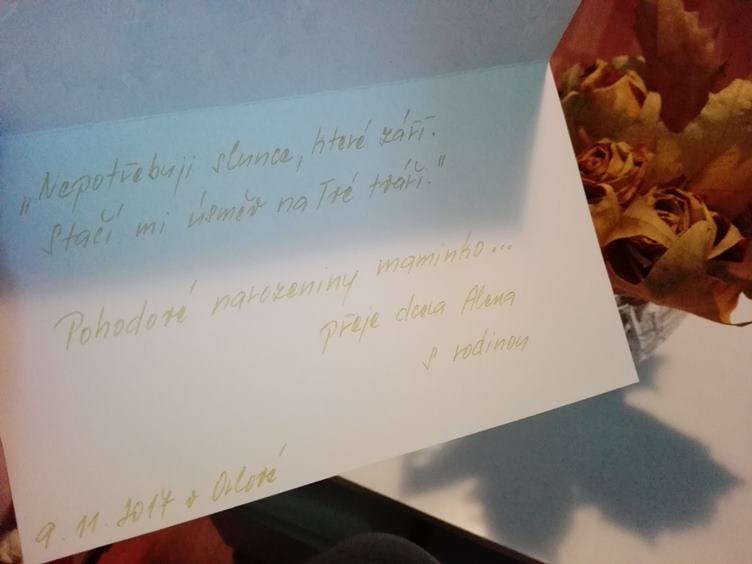 „Nepotřebuji slunce, které září.
Stačí mi úsměv na Tvé tváři."
Pohodové narozeniny maminko...
přeje dcera Alena
s rodinou
9. 11. 2017 v Orlové